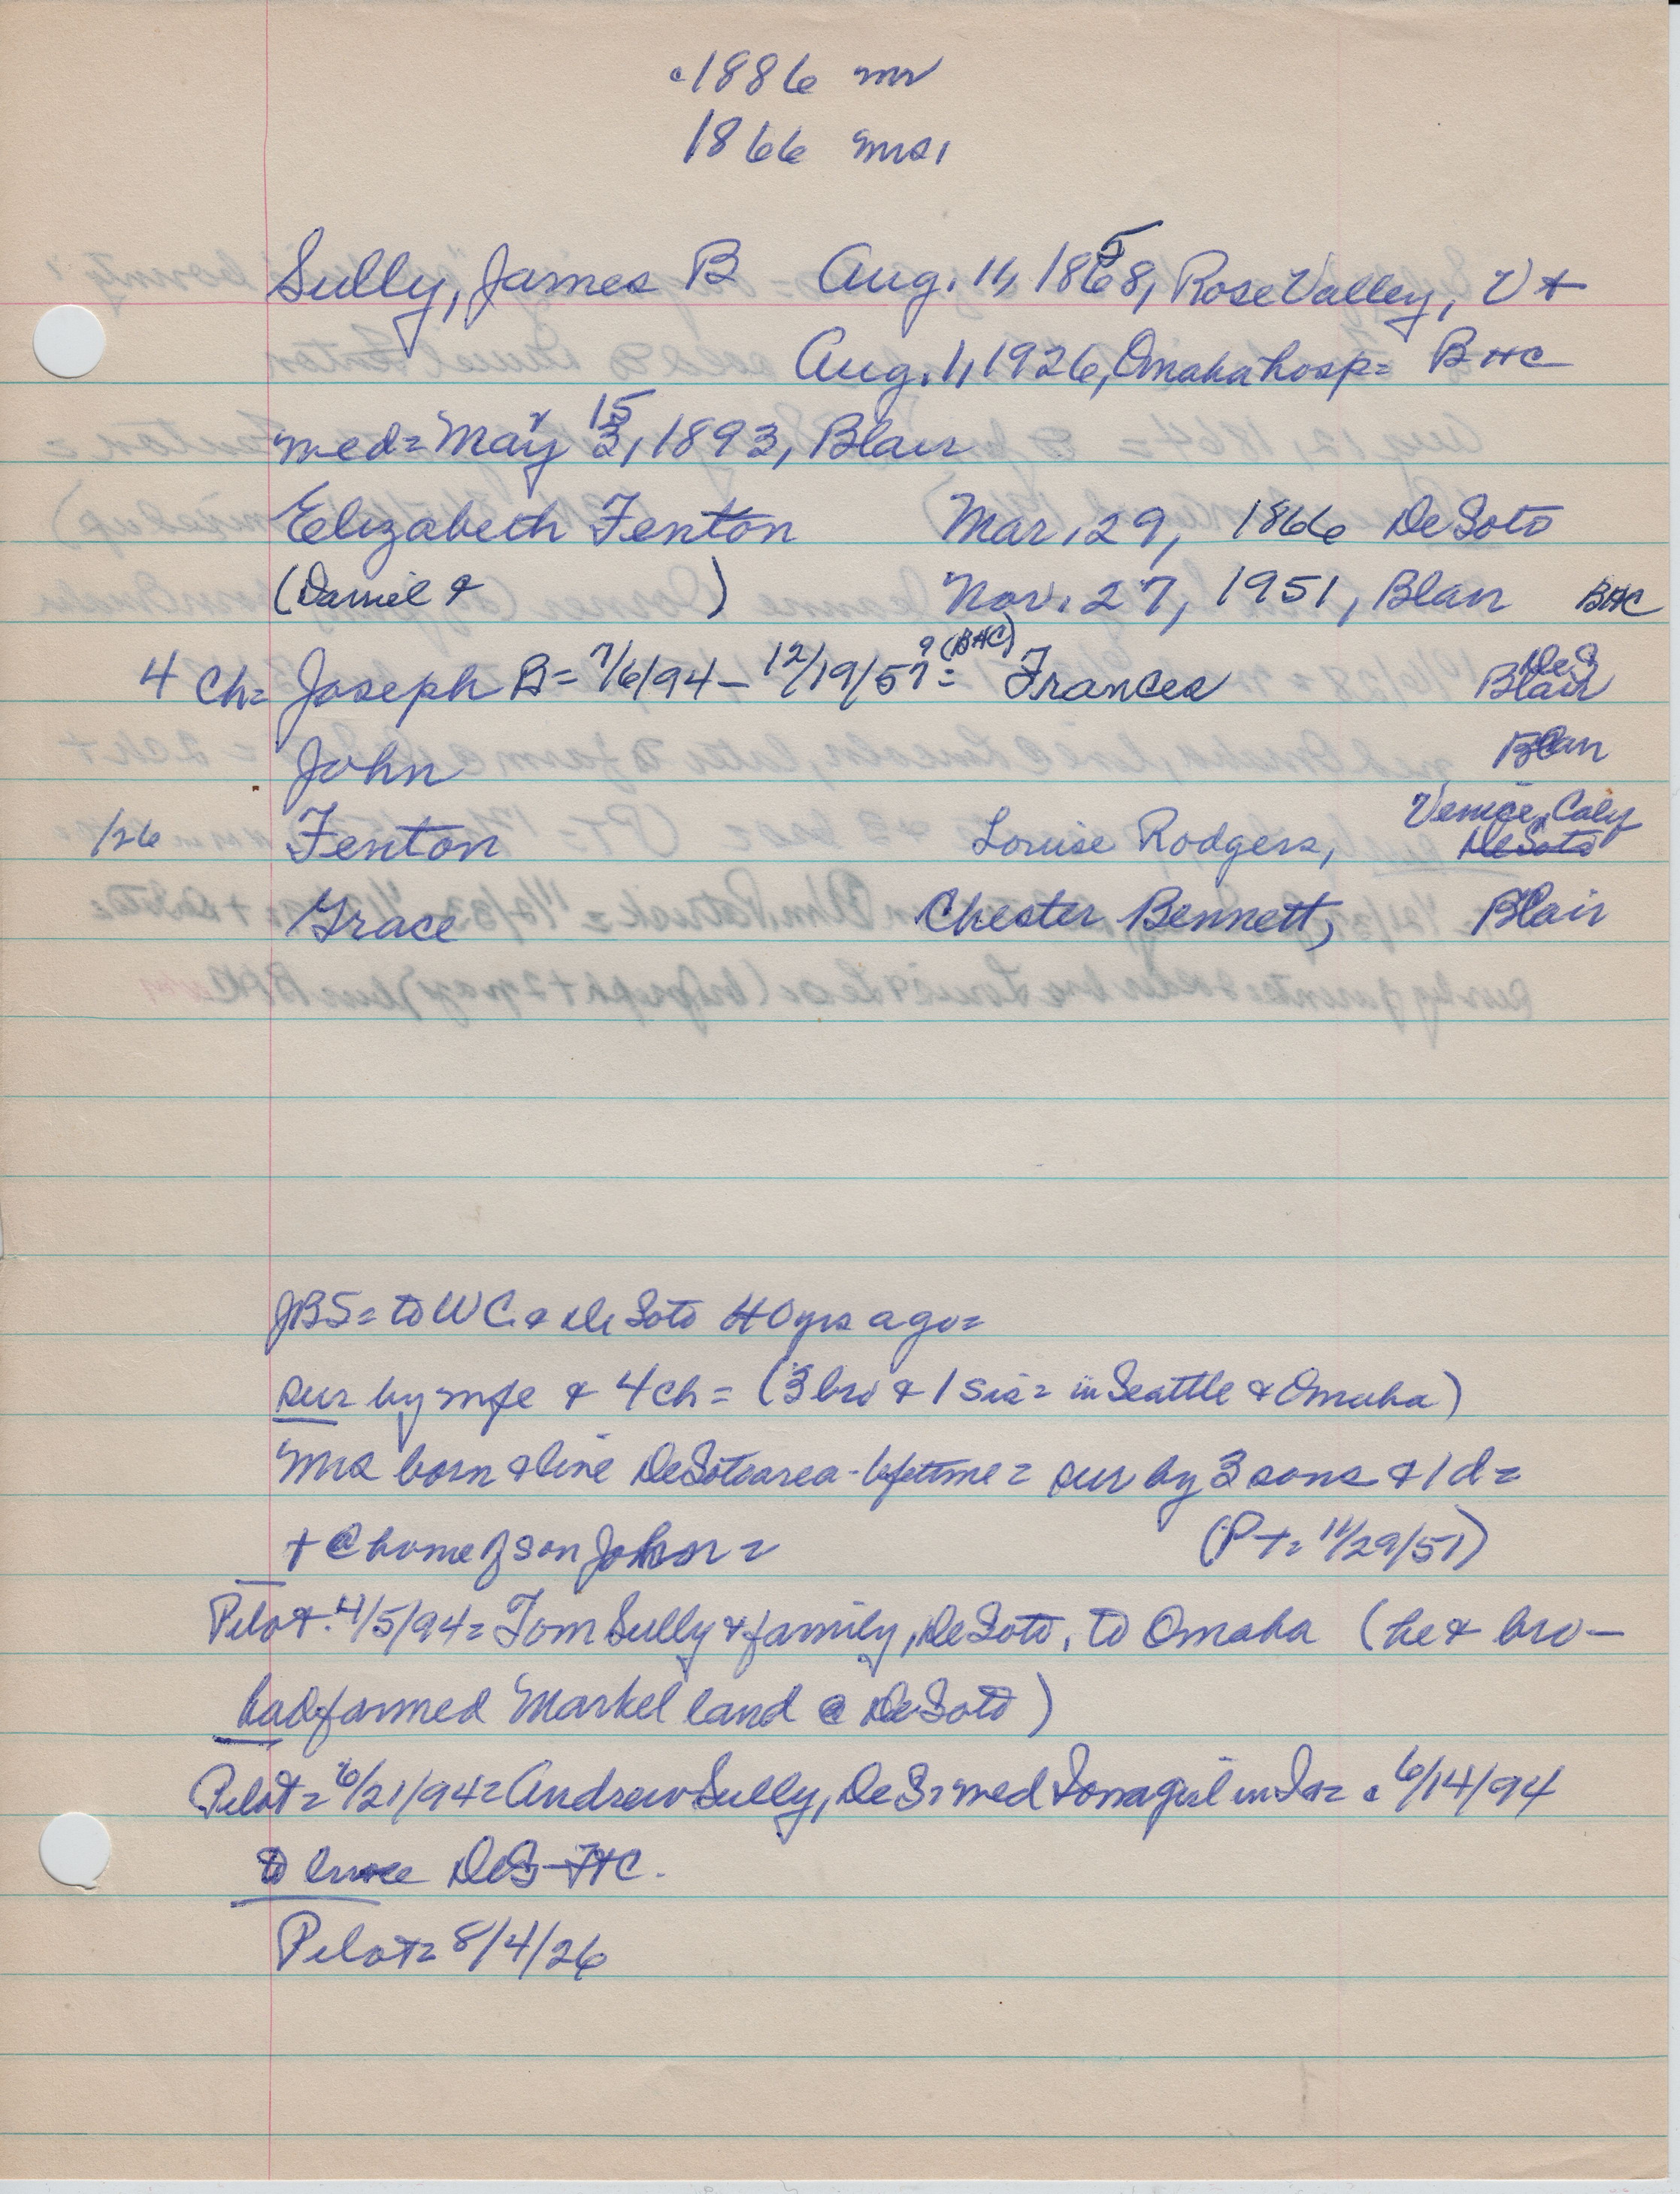 c1886 mr
1866 mrs.
Sully, James B Aug. 11, 1868, Rose Valley, Vt
5
Aug. 1, 1926, Omaha hosp= BHC
med= May 3, 1893, Blair
15
Elizabeth Fenton Mar. 29, 1866 DeSoto
(Daniel & ) Nov. 27, 1951, Blair BHC
4 Ch= Joseph B= 7/6/94 – 12/19/57= Frances Blair
9 (BHC) DeS
John Blair
1/26 Fenton Louise Rodgers, DeSoto
Venice, Calif
Grace Chester Bennett, Blair
JBS= to WC & DeSoto 40 yrs ago=
sur by wife & 4 ch= (3 bro & 1 sis= in Seattle & Omaha)
Mrs born & live DeSoto area - lifetime= sur by 3 sons & 1 d=
+ @ home of son John= (Pt= 11/29/51)
Pilot= 4/5/94= Tom Sully & family, DeSoto, to Omaha (he & bro –
had farmed Markel land @ DeSoto)
Pilot= 6/21/94= Andrew Sully, DeS= med Iowa girl in Ia= c 6/14/94
to DeS – FtC.
Pilot= 8/4/26